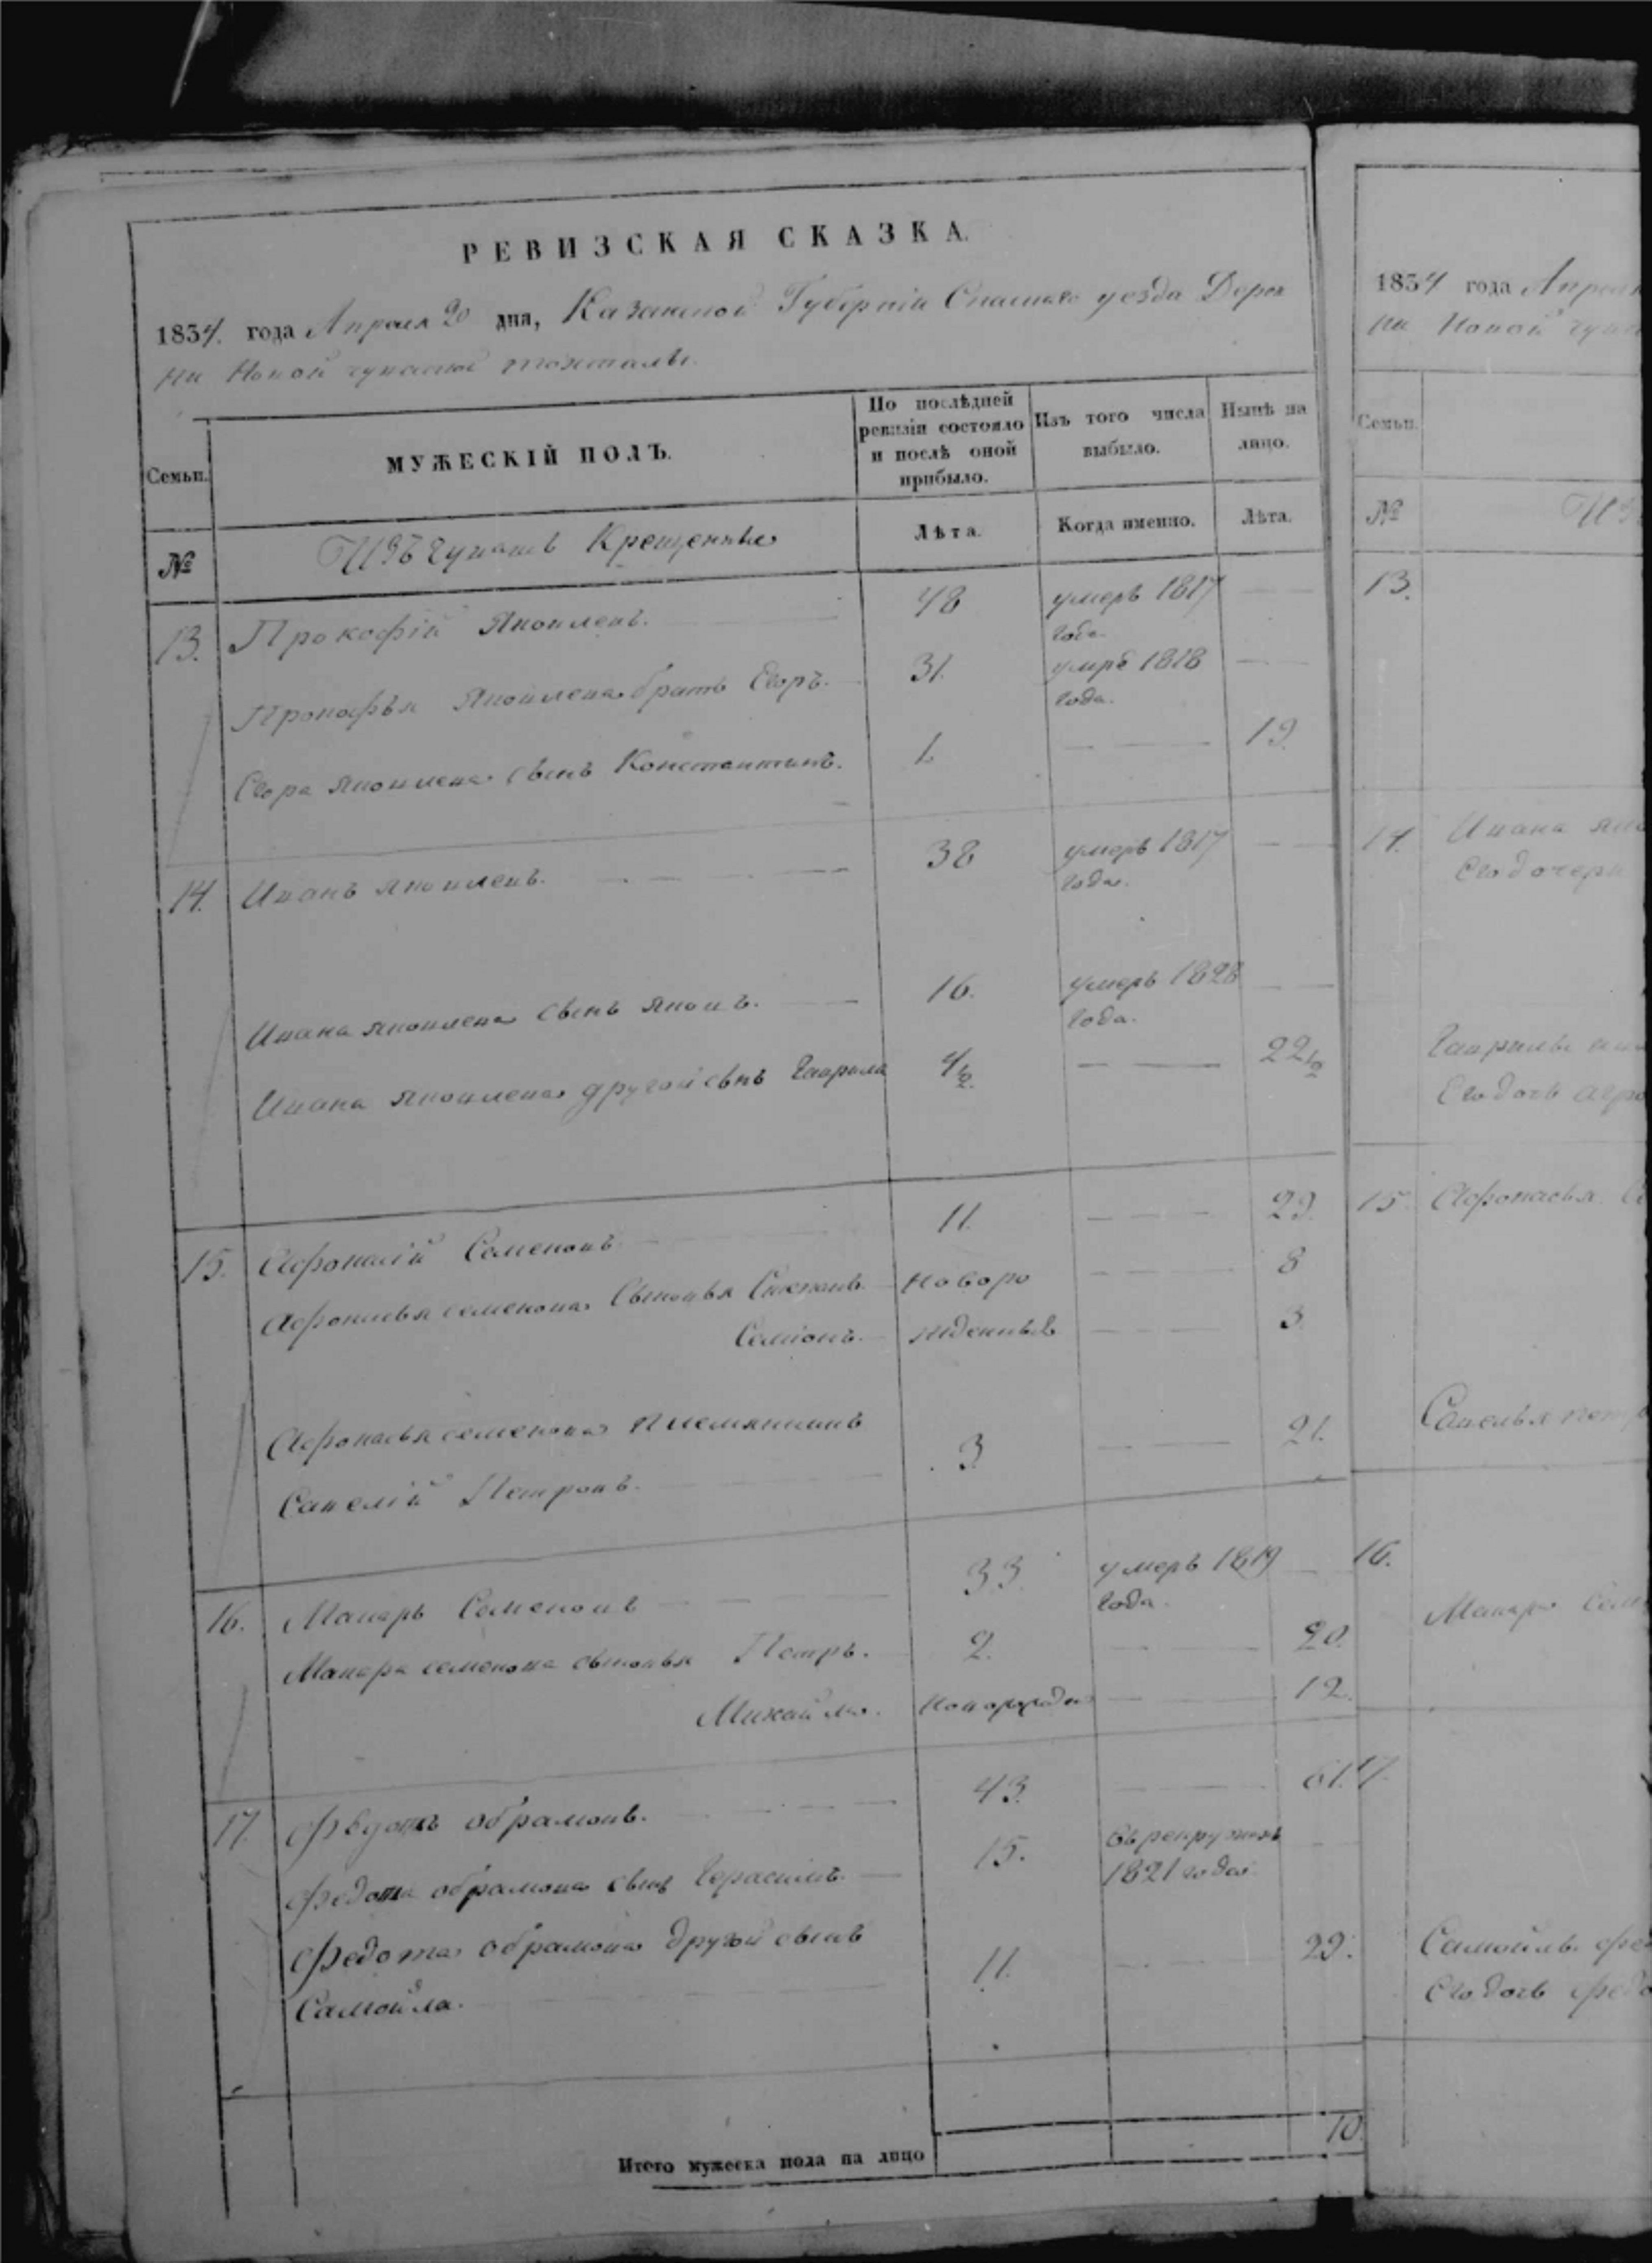 РЕВИЗСКАЯ СКАЗКА.
1834 года Апреля 20 дня, Казанской Губернiи Спаскаго уезда Дерев
ни Новой чуваской
Семьи.
МУЖЕСКIЙ ПОЛЪ.
По послѣдней ревизiи состояло и послѣ оной прибыло.
Изъ того числа выбыло.
Нынѣ на лицо.
№
Изъ Чувашъ Крещенные
Лѣта.
Когда именно.
Лѣта.
13. Прокофiй Яковлевъ. 48 умеръ 1817 года.
Прокофья Яковлева братъ Егоръ. 31. умре 1818 года.
Егора Яковлева сынъ Константинъ. 1. 19.
14. Иванъ Яковлевъ. 38 умеръ 1817 года.
Ивана Яковлева сынъ Яковъ. 16. умеръ 1828 года.
Ивана Яковлева другой сынъ Гаврила 4½ 22½
15. Афонасiй Семеновъ 11. 29.
Афонасья семенова Сыновья Степанъ. новоро 8
Семiонъ. жденные 3.
Афонасья семенова племянникъ
Савелiй Петровъ. 3. 21.
16. Макаръ Семеновъ 33. умеръ 1819 года.
Макара семенова сыновья Петръ. 2. 20.
Михайла. новорожден 12.
17. Федотъ обрамовъ. 43. 61.
Федота обрамова сынъ Герасимъ. 15. въ рекрутахъ 1821 года.
Федота обрамова другой сынъ
Самойла. 11. 29.
Итого мужеска пола на лицо 10.
1834 года Апреля
ни Новой
Семьи.
№
Из
13.
14. Ивана
Его дочери
Гаврилы
Его дочь
15. Афонасья
Савелья
16.
Макара
17.
Самойлы
Его дочь